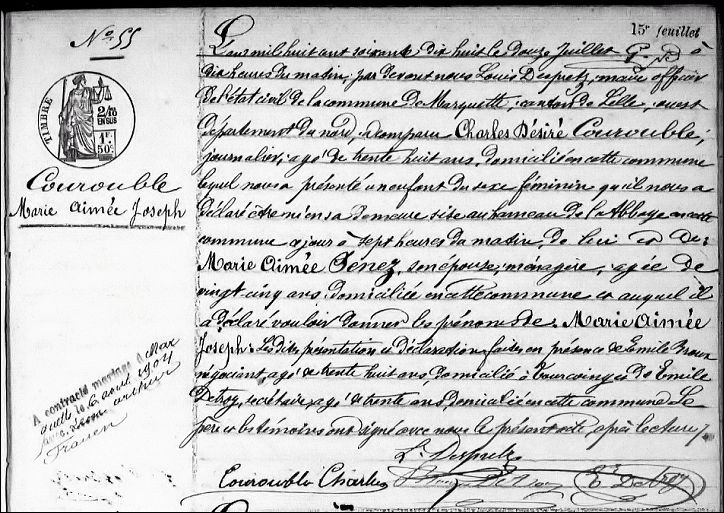 15e feuillet
No 55
TIMBRE
2/10
EN SUS
1 F.
50c
Courouble
Marie Aimée Joseph
A contracté mariage à Mar
quette le 6 août 1904
avec Léon Arthur
L'an mil huit cent soixante dix huit le douze Juillet à
dix heures du matin, par devant nous Louis Despretz, maire officier
de l'état civil de la commune de Marquette, canton de Lille, ouest
département du nord, a comparu Charles Désiré Courouble,
journalier, âgé de trente huit ans, domicilié en cette commune
lequel nous a présenté un enfant du sexe féminin qu'il nous a
déclaré être né en sa demeure sise au hameau de l'Abbaye en cette
commune ce jour à sept heures du matin, de lui et de
Marie Aimée Senez, son épouse, ménagère, âgée de
vingt cinq ans, domiciliée en cette commune et auquel il
a déclaré vouloir donner les prénoms de Marie Aimée
Joseph. Les dites présentation et déclaration faites en présence de Emile
négociant, âgé de trente huit ans, domicilié à Tourcoing et de Emile
Detroy, secrétaire, âgé de trente ans, domicilié en cette commune. Le
père et les témoins ont signé avec nous le présent acte après lecture
Ls Despretz
Courouble Charles
E. Detroy